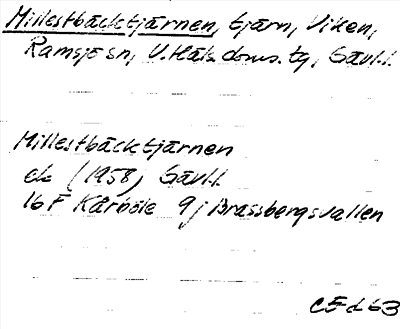 Millestbäcktjärnen, tjärn, Viken,
Ramsjö sn, V.Häls.doms.tg, Gävl.l.
Millestbäcktjärnen
ek (1958) Gävl.l
16F Kårböle 9j Brassbergsvallen